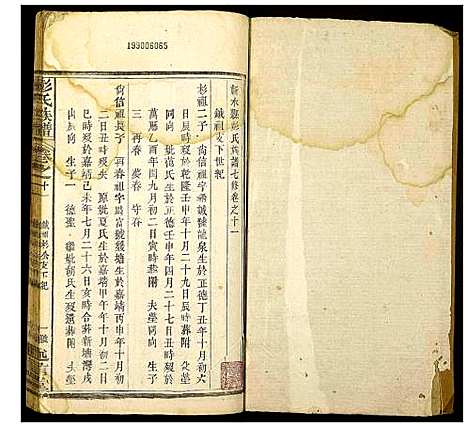 199006065
蘄水縣彭氏族譜七修卷之十一
鉞祖支下世紀
杉祖二子 尚信祖字誠號龍泉生於正德丁丑年十月初六
日辰時歿於乾隆壬申年十月二十九日辰時葬附 父塋
同向 妣范氏生於正德壬申年四月二十七日丑時歿於
萬歷乙酉年四九月初二日寅時葬附 夫塋同向 生子
三 再春 榮春 守春
尚信祖長子 再春祖字 號 塘生於嘉靖丙申年十月初
二日丑時歿 原妣夏氏生於嘉靖甲午年十月初二日
時歿於嘉靖己未年七月二十六日亥時合葬新塘灣戌
山辰向 生子一 德聖 繼妣胡氏生歿闕葬附 夫塋
彭氏族譜
卷之十